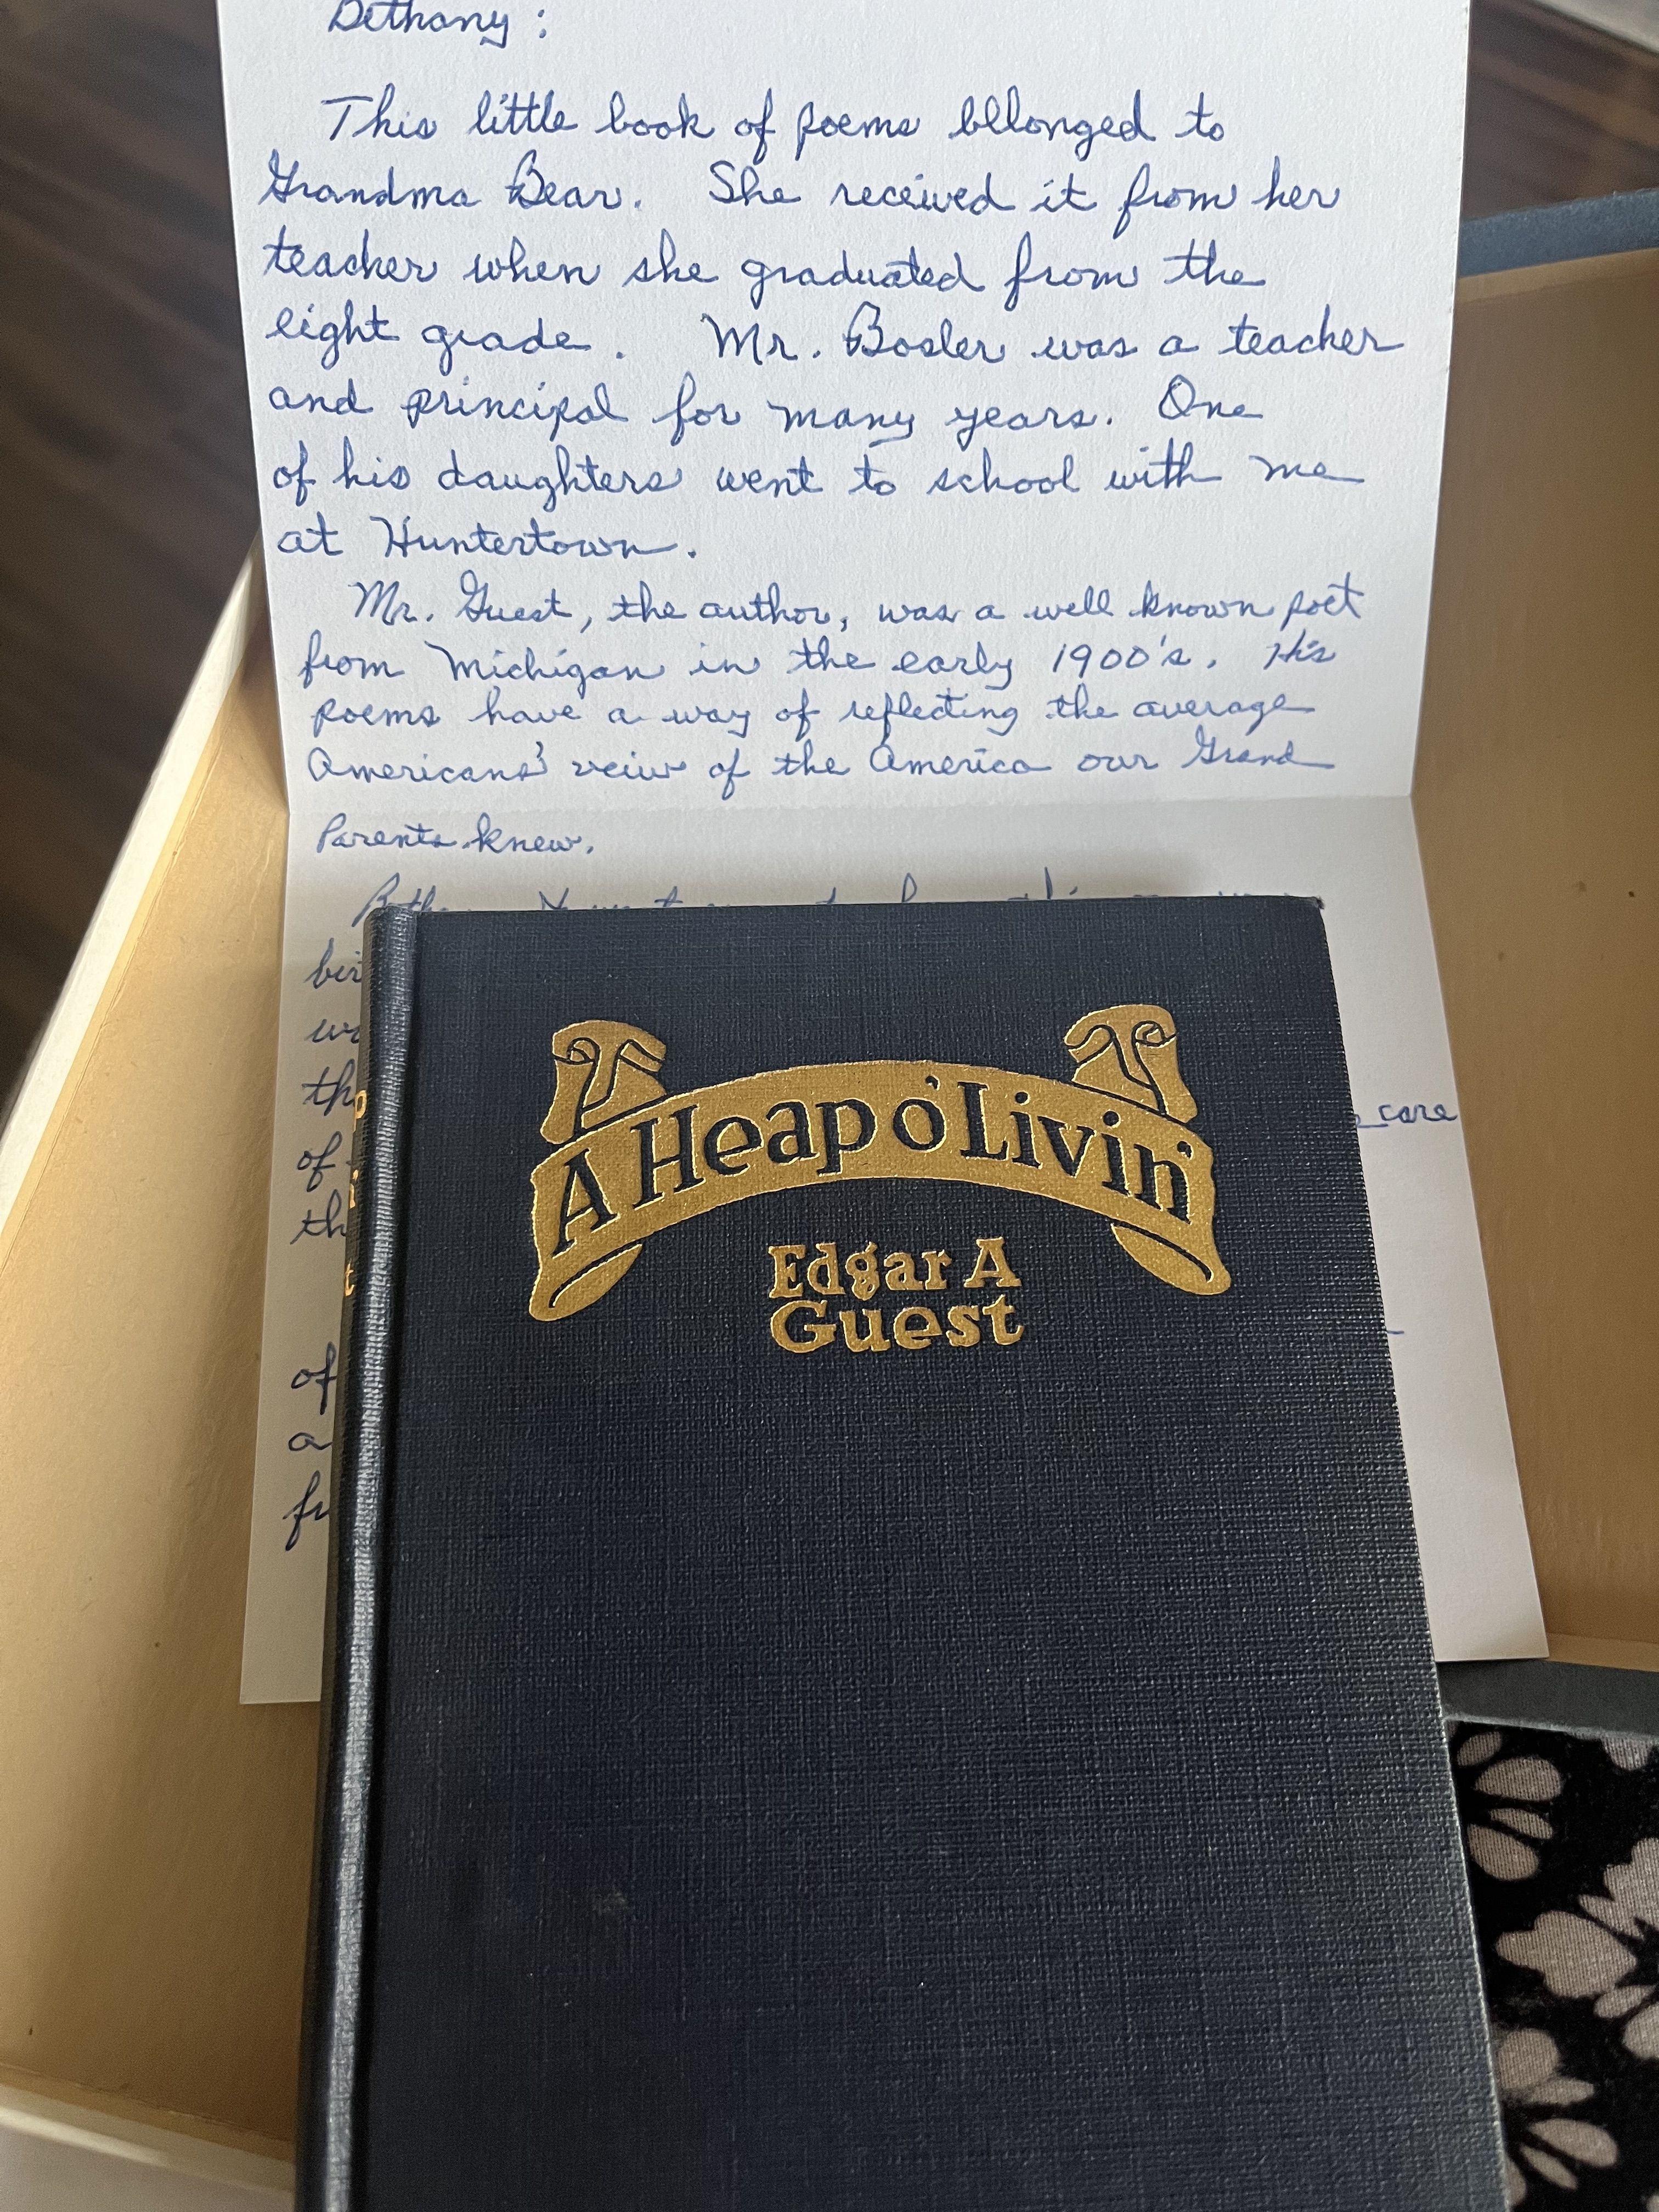 Bethany:
This little book of poems bllonged to
Grandma Bear. She received it from her
teacher when she graduated from the
eight grade. Mr. Bosler was a teacher
and principal for many years. One
of his daughters went to school with me
at Huntertown.
Mr. Guest, the author, was a well known poet
from Michigan in the early 1900's. His
poems have a way of reflecting the average
Americans' veiw of the America our Grand
Parents knew.
of
care
of
a
A Heap o' Livin'
Edgar A
Guest